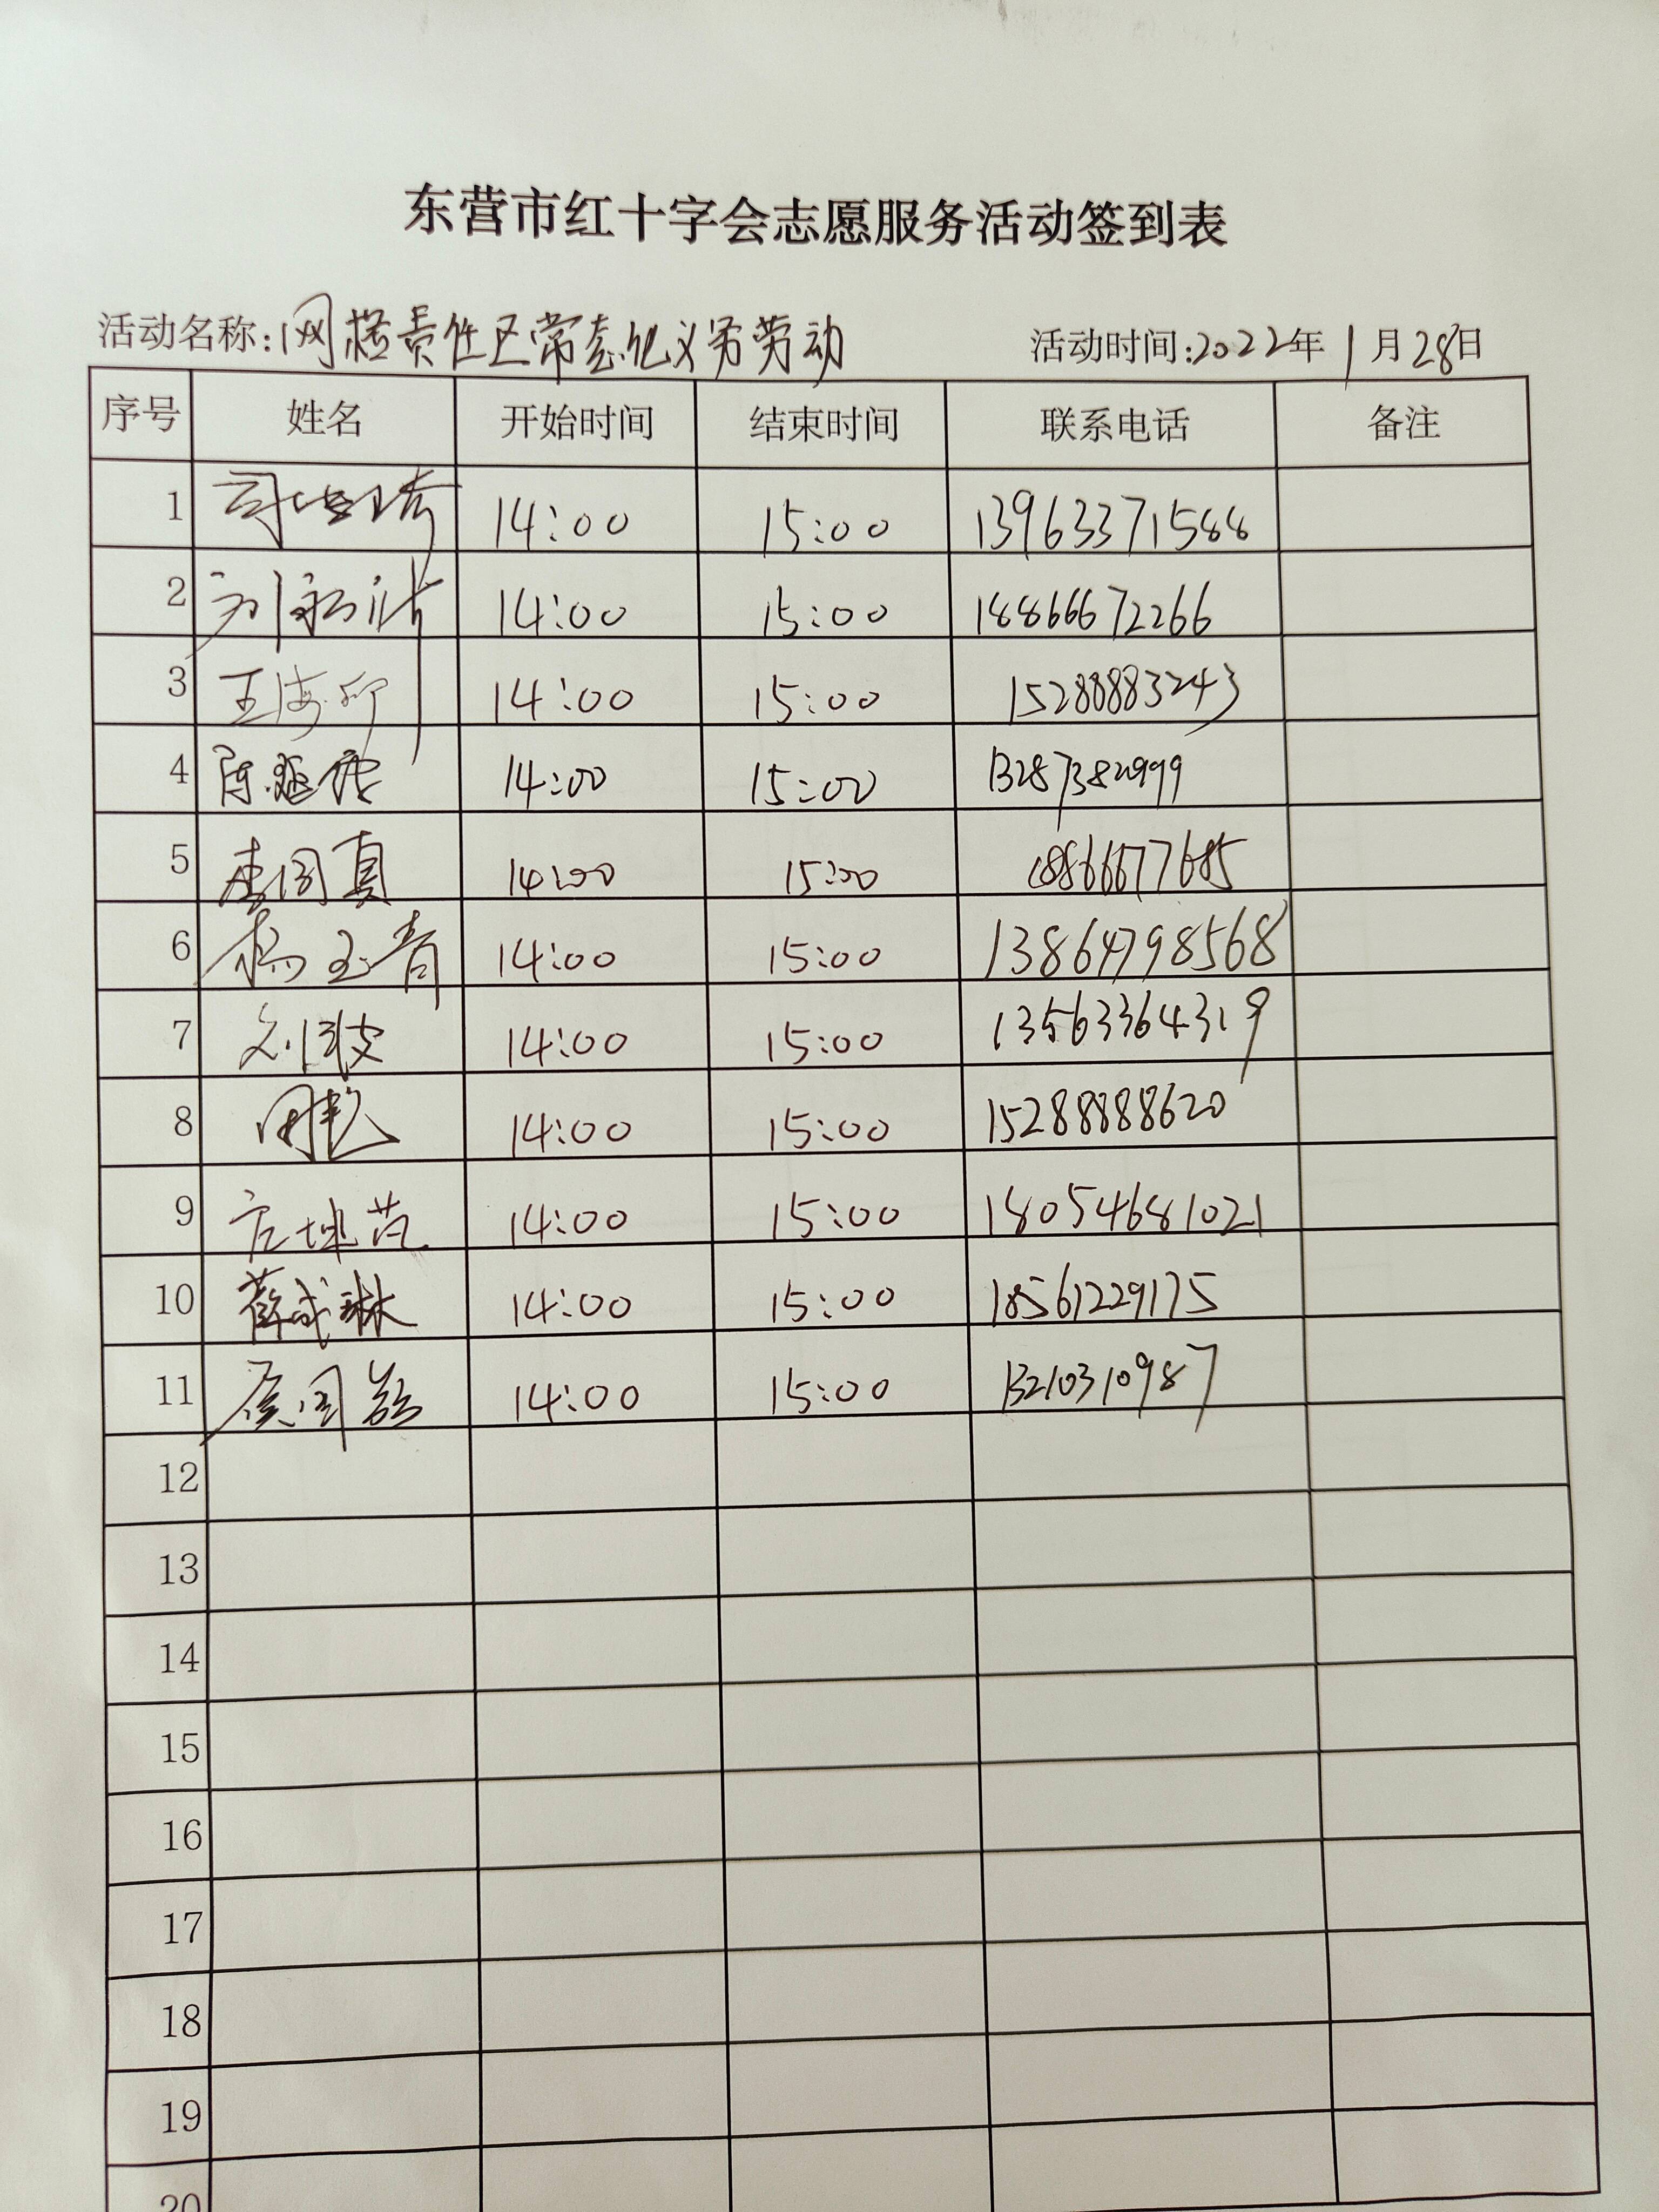 东营市红十字会志愿服务活动签到表
活动名称:网格责任区常态化义务劳动 活动时间:2022年1月28日
序号 姓名 开始时间 结束时间 联系电话 备注
1 14:00 15:00 13963371588
2 14:00 15:00 18866672266
3 王海 14:00 15:00 15288883243
4 陈延 14:00 15:00 13287382999
5 李国夏 14:00 15:00 18866677685
6 杨玉青 14:00 15:00 13864798568
7 刘波 14:00 15:00 13563364319
8 14:00 15:00 15288888620
9 14:00 15:00 18054681021
10 薛成琳 14:00 15:00 18561229175
11 14:00 15:00 13210310987
12
13
14
15
16
17
18
19
20